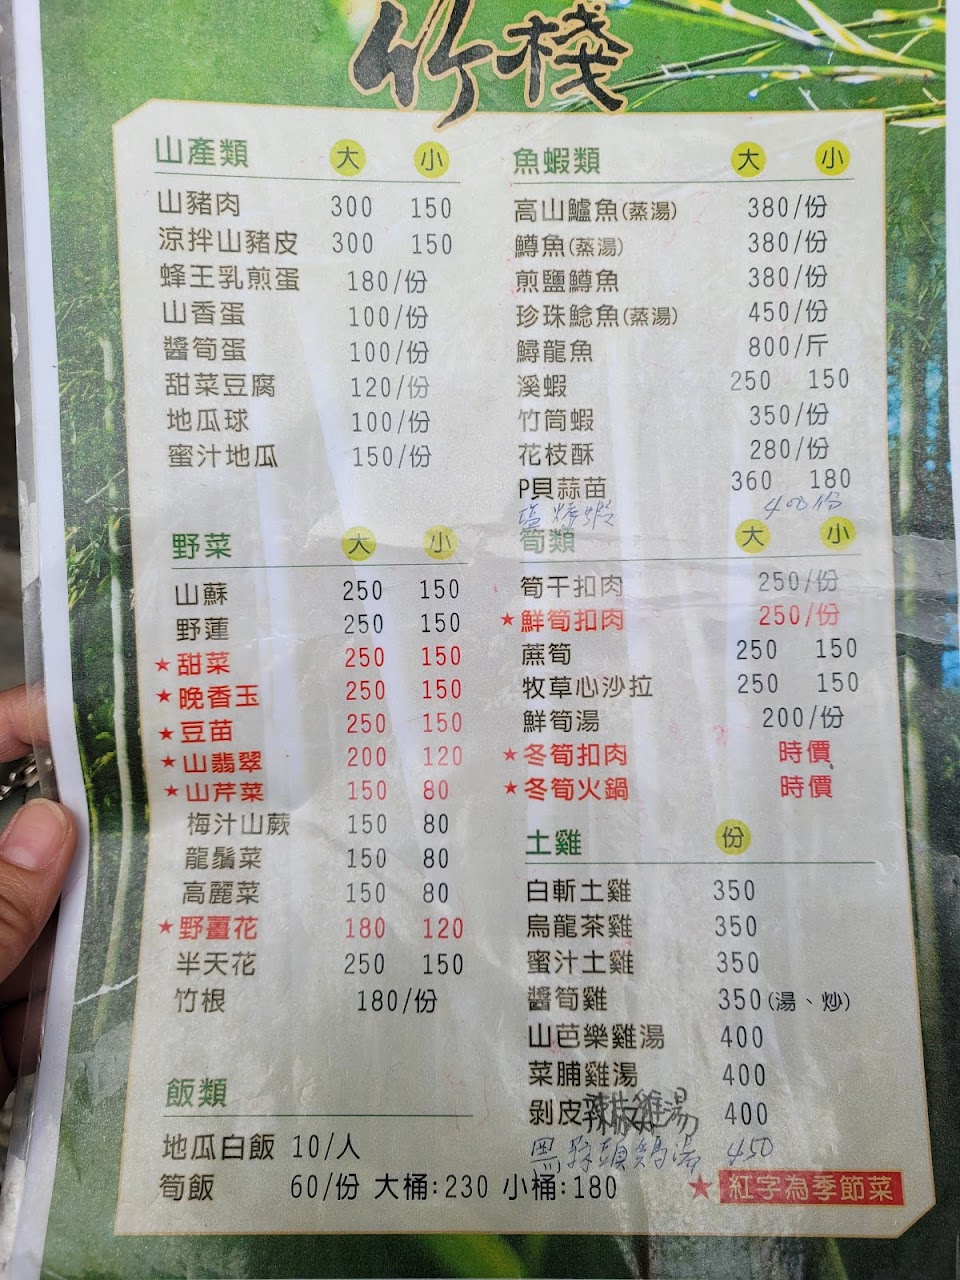 竹棧
山產類 大 小
山豬肉 300 150
涼拌山豬皮 300 150
蜂王乳煎蛋 180/份
山香蛋 100/份
醬筍蛋 100/份
甜菜豆腐 120/份
地瓜球 100/份
蜜汁地瓜 150/份
野菜 大 小
山蘇 250 150
野蓮 250 150
★甜菜 250 150
★晚香玉 250 150
★豆苗 250 150
★山翡翠 200 120
★山芹菜 150 80
梅汁山蕨 150 80
龍鬚菜 150 80
高麗菜 150 80
★野薑花 180 120
半天花 250 150
竹根 180/份
飯類
地瓜白飯 10/人
筍飯 60/份 大桶:230 小桶:180
魚蝦類 大 小
高山鱸魚(蒸湯) 380/份
鱒魚(蒸湯) 380/份
煎鹽鱒魚 380/份
珍珠鯰魚(蒸湯) 450/份
鱘龍魚 800/斤
溪蝦 250 150
竹筒蝦 350/份
花枝酥 280/份
P貝蒜苗 360 180
塩烤蝦 400份
筍類 大 小
筍干扣肉 250/份
★鮮筍扣肉 250/份
蔗筍 250 150
牧草心沙拉 250 150
鮮筍湯 200/份
★冬筍扣肉 時價
★冬筍火鍋 時價
土雞 份
白斬土雞 350
烏龍茶雞 350
蜜汁土雞 350
醬筍雞 350(湯、炒)
山芭樂雞湯 400
菜脯雞湯 400
剝皮辣椒雞湯 400
黑蒜頭鷄湯 450
★紅字為季節菜